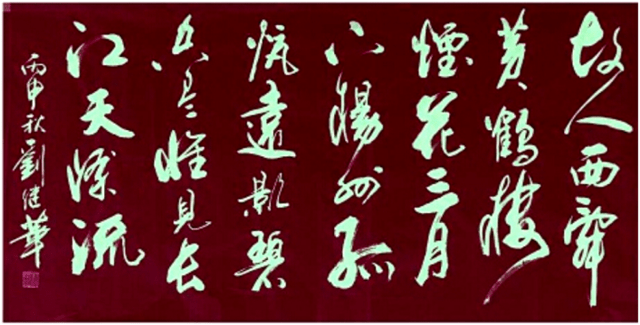 故人西辭
黄鶴楼
煙花三月
下揚州孤
帆遠影碧
空尽惟見长
江天際流
丙申秋劉继華